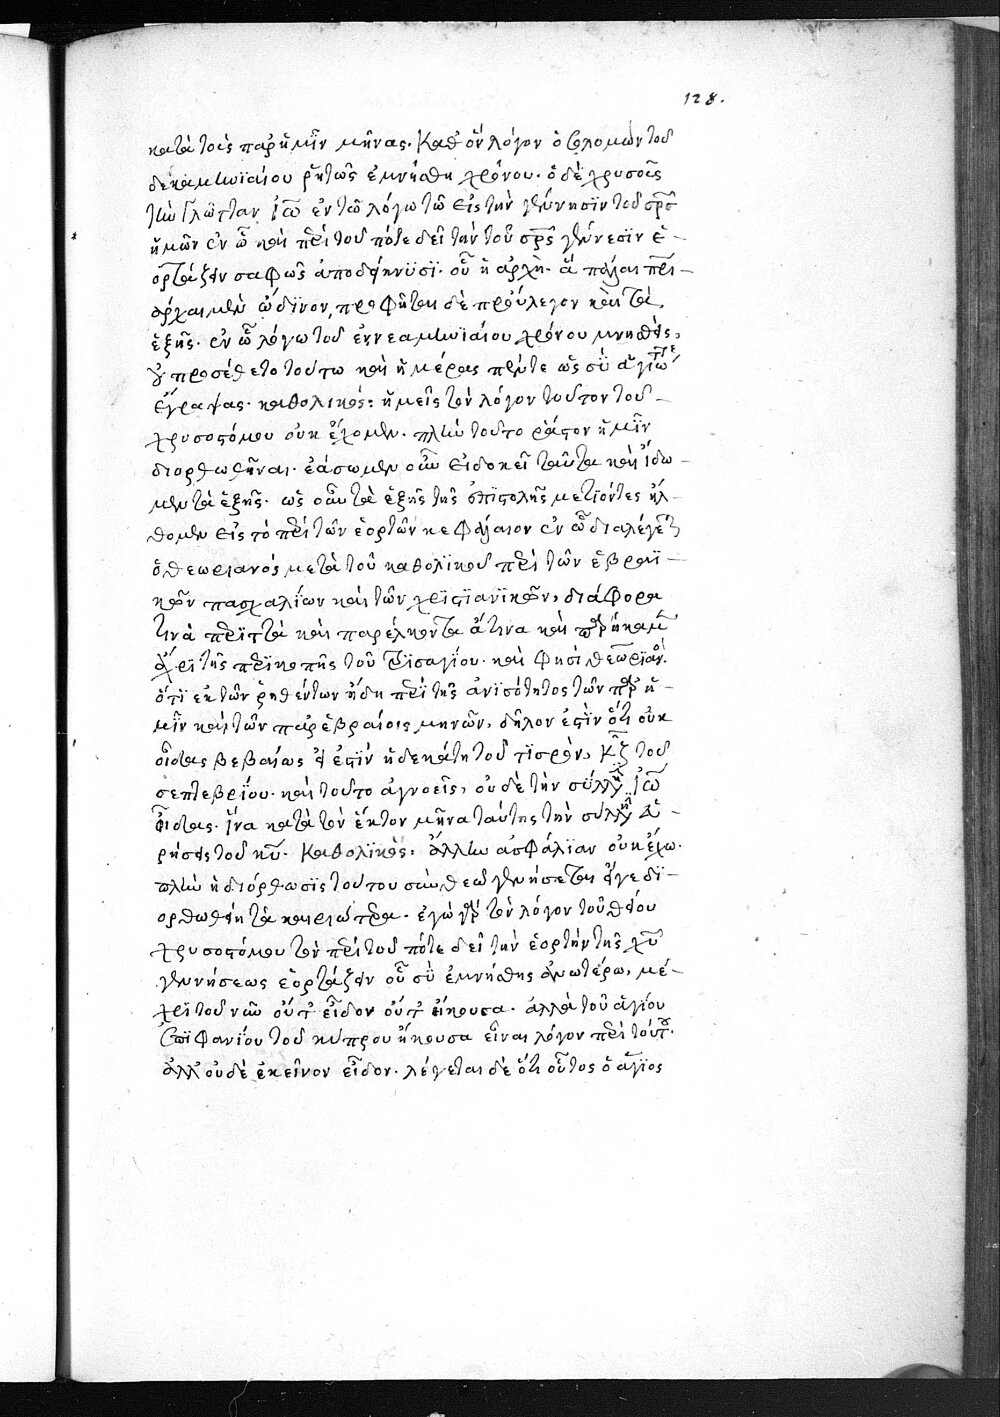 128.
κατὰ τοὺς παρ' ἡμῖν μῆνας. καθ' ὃν λόγον ὁ σολομὼν τοῦ
δεκαμηνιαίου ῥητῶς ἐμνήσθη χρόνου. ὁ δὲ χρυσοῦς
τὴν γλῶτταν ἰῶ ἐν τῶ λόγω τῶ εἰς τὴν γέννησϊν τοῦ σρσ
ἡμῶν ἐν ὧ καὶ περὶ τοῦ πότε δεῖ τὴν τοῦ σρσ γέννεσϊν ἑ-
ορτάζειν σαφῶς ἀποδείκνυσϊ. οὗ ἡ ἀρχὴ. ἃ πάλαι πρι-
άρχαι μὲν ὤδϊνον, προφῆται δὲ προύλεγον καὶ τὰ
ἑξῆς. ἐν ὧ λόγω τοῦ ἐννεαμηνιαίου χρόνου μνησθεὶς,
προσέθετο τούτω καὶ ἡμέρας πέντε ὡς σὺ ἁγιώτ
ἔγραψας. καθολικός: ἡμεῖς τὸν λόγον τοῦτον τοῦ
χρυσοστόμου οὐκ ἔχομεν. πλὴν τοῦτο ῥᾶστον ἡμῖν
διορθωθῆναι. ἐάσωμεν οὖν εἰ δοκεῖ ταῦτα καὶ ἴδω-
μεν τὰ ἑξῆς. ὡς οὖν τὰ ἑξῆς τῆς ἐπιστολῆς μετϊόντες ἤλ-
θομεν εἰς τὸ περὶ τῶν ἑορτῶν κεφάλαιον ἐν ὧ διαλέγετ
ὁ θεωριανός μετὰ τοῦ καθολϊκοῦ περὶ τῶν ἑβραϊ-
κῶν πασχαλίων καὶ τῶν χριστϊανϊκῶν, διάφορα
τινὰ περϊττὰ καὶ παρέλκοντα ἅτινα καὶ παρήκαμ
ἄχρϊ τῆς περϊκοπῆς τοῦ τρϊσαγίου. καὶ φησὶ θεωρϊαν.
ὅτϊ ἐκ τῶν ῥηθέντων ἤδη περὶ τῆς ἀνϊσότητος τῶν παρ' ἡ-
μῖν καὶ τῶν παρ' ἑβραίοις μηνῶν, δῆλον ἐστὶν ὅτι οὐκ
οἶδας βεβαίως εἰ ἐστὶν ἡ δεκάτη τοῦ τϊσρὶν, κζ τοῦ
σεπτεβρίου. καὶ τοῦτο ἀγνοεῖς, οὐδὲ τὴν σύλλη ἰῶ
οἶδας. ἵνα κατὰ τὸν ἕκτον μῆνα ταύτης τὴν σύλλη εὑ-
ρήσεις τοῦ κυ. καθολϊκὸς. ἄλλην ἀσφάλϊαν οὐκ ἔχω.
πλὴν ἡ διόρθωσϊς τούτου σὺν θεῶ γενήσεται εἴγε δϊ-
ορθωθείη τὰ καιριώτερα. ἐγὼ γὰρ τὸν λόγον τοῦ θείου
χρυσοστόμου τὸν περὶ τοῦ πότε δεῖ τὴν ἑορτὴν τῆς χυ
γεννήσεως ἑορτάζειν οὗ σὺ ἐμνήσθης ἀνωτέρω, μέ-
χρϊ τοῦ νῦν οὔτ' εἶδον οὔτ' ἤκουσα. ἀλλὰ τοῦ ἁγίου
ἐπϊφανίου τοῦ κύπρου ἤκουσα εἶναι λόγον περὶ τούτ.
ἀλλ' οὐδὲ ἐκεῖνον εἶδον. λέγεται δὲ ὅτι οὗτος ὁ ἅγϊος